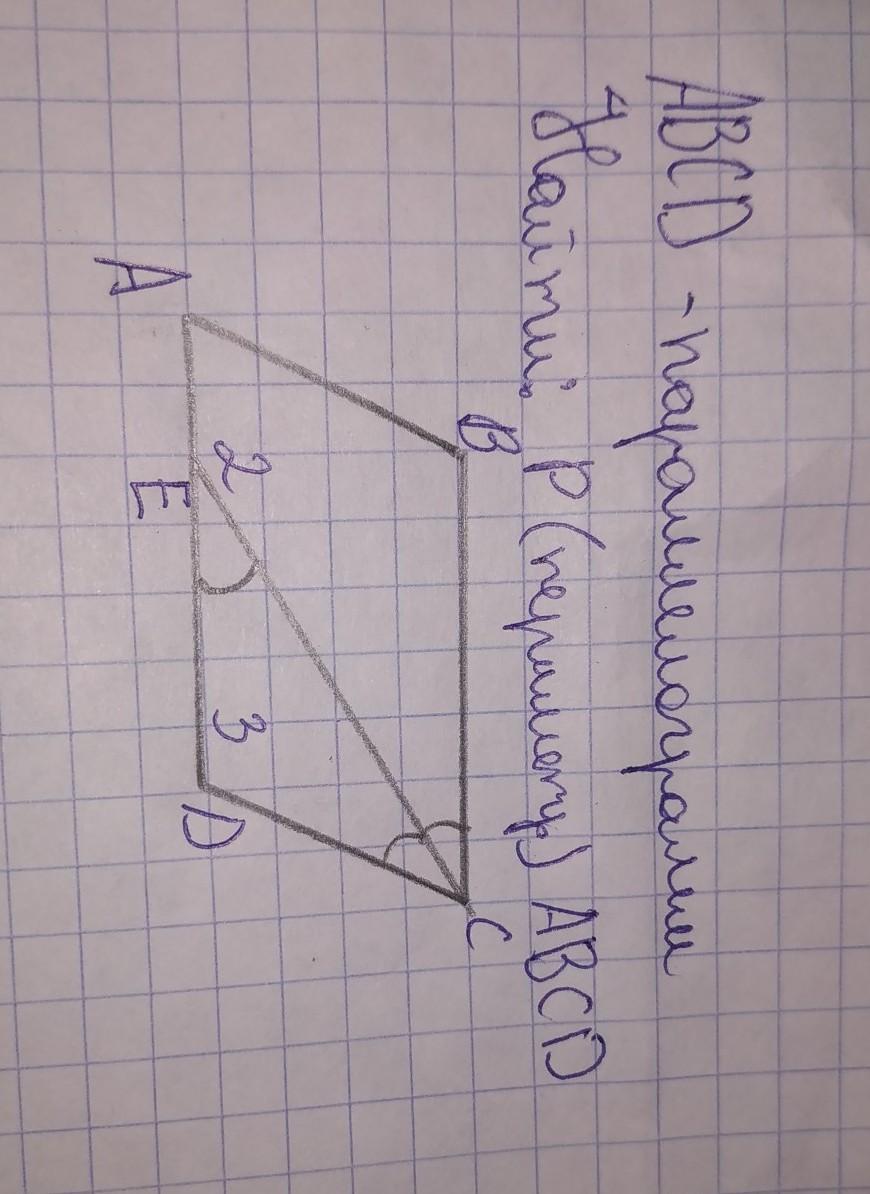 ABCD - параллелограмм
Найти: P(периметр) ABCD
B
C
2
3
A
E
D